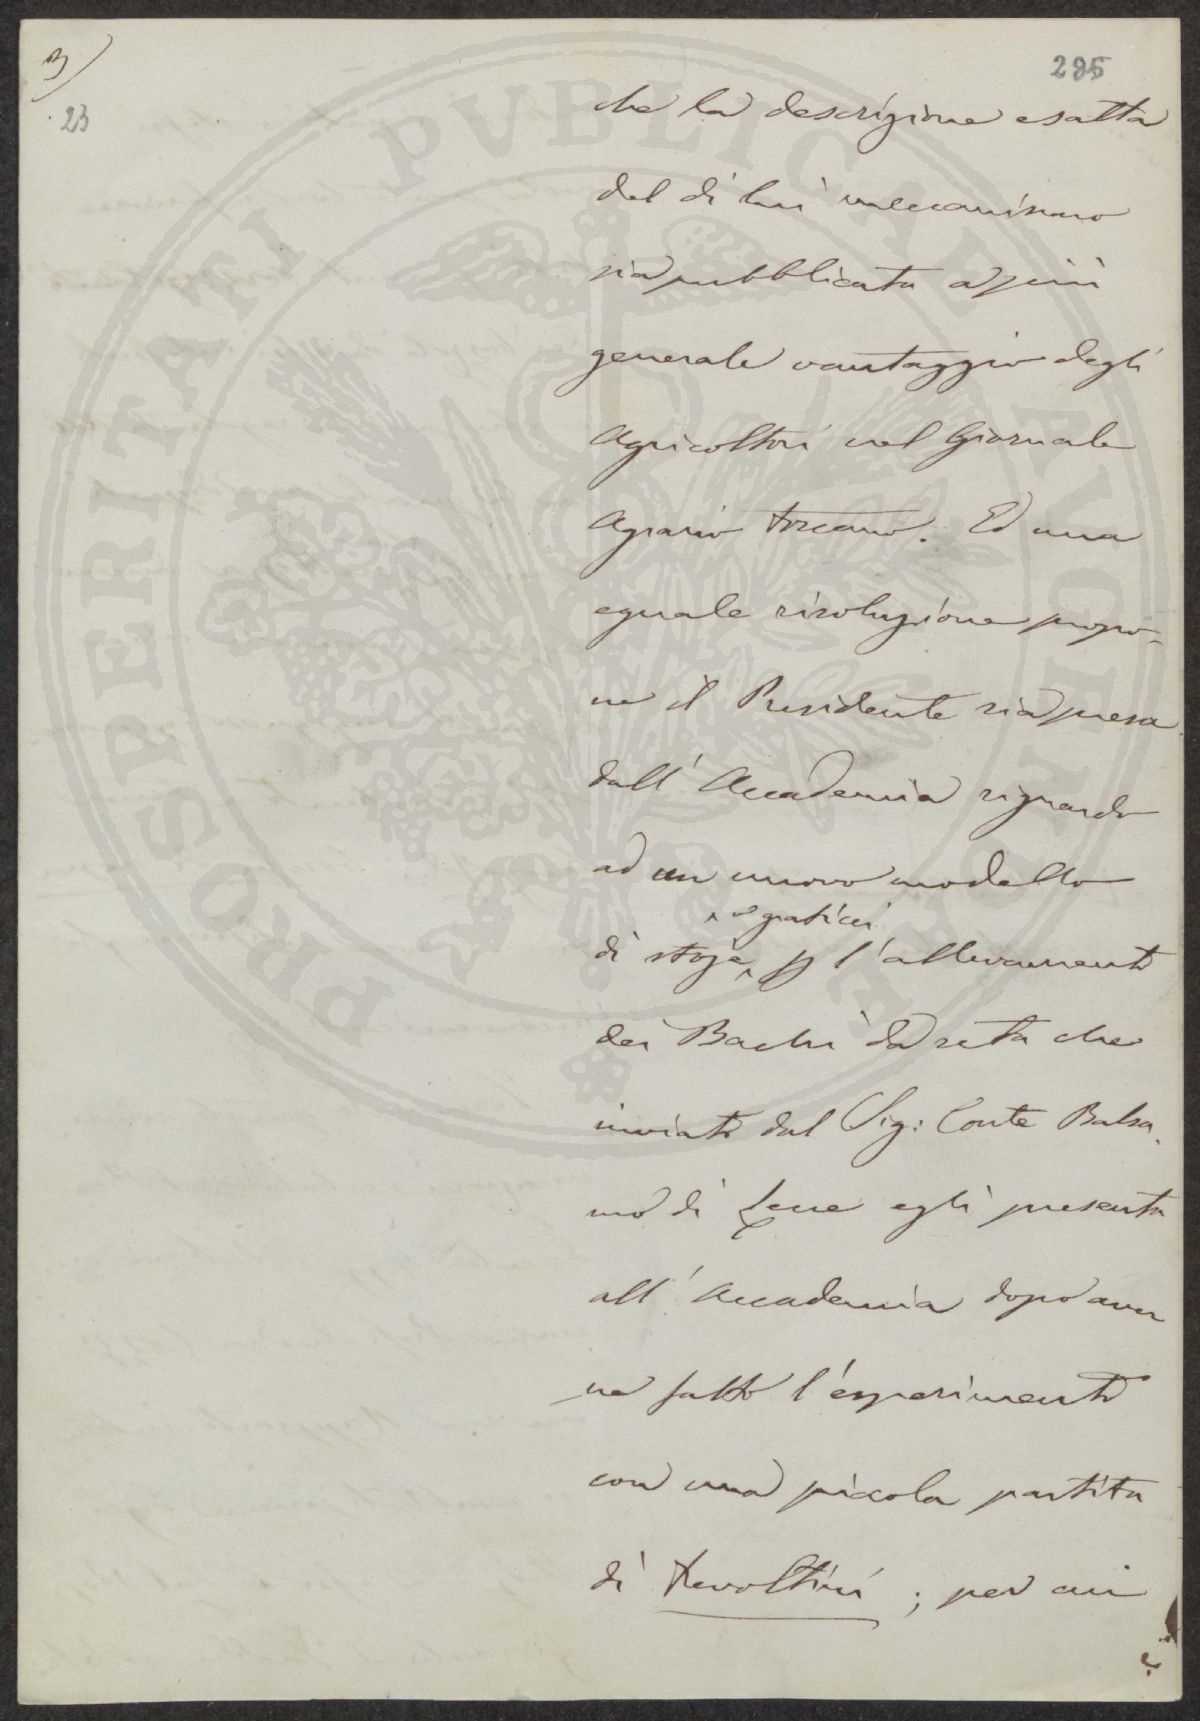 3)
23
285
che la descrizione esatta
del di lui meccanismo
sia pubblicata a più
generale vantaggio degli
Agricoltori nel Giornale
Agrario toscano. Ed una
eguale risoluzione propo-
ne il Presidente sia presa
dall' Accademia riguardo
ad un nuovo modello
o graticci
di stoje p l'allevamento
dei Bachi da seta che
inviato dal Sig: Conte Balsa
mo di Lecce egli presenta
all' Accademia dopo aver
ne fatto l'esperimento
con una piccola partita
di trevoltini; per cui
PROSPERITATI PVBLICAE AVGENDAE